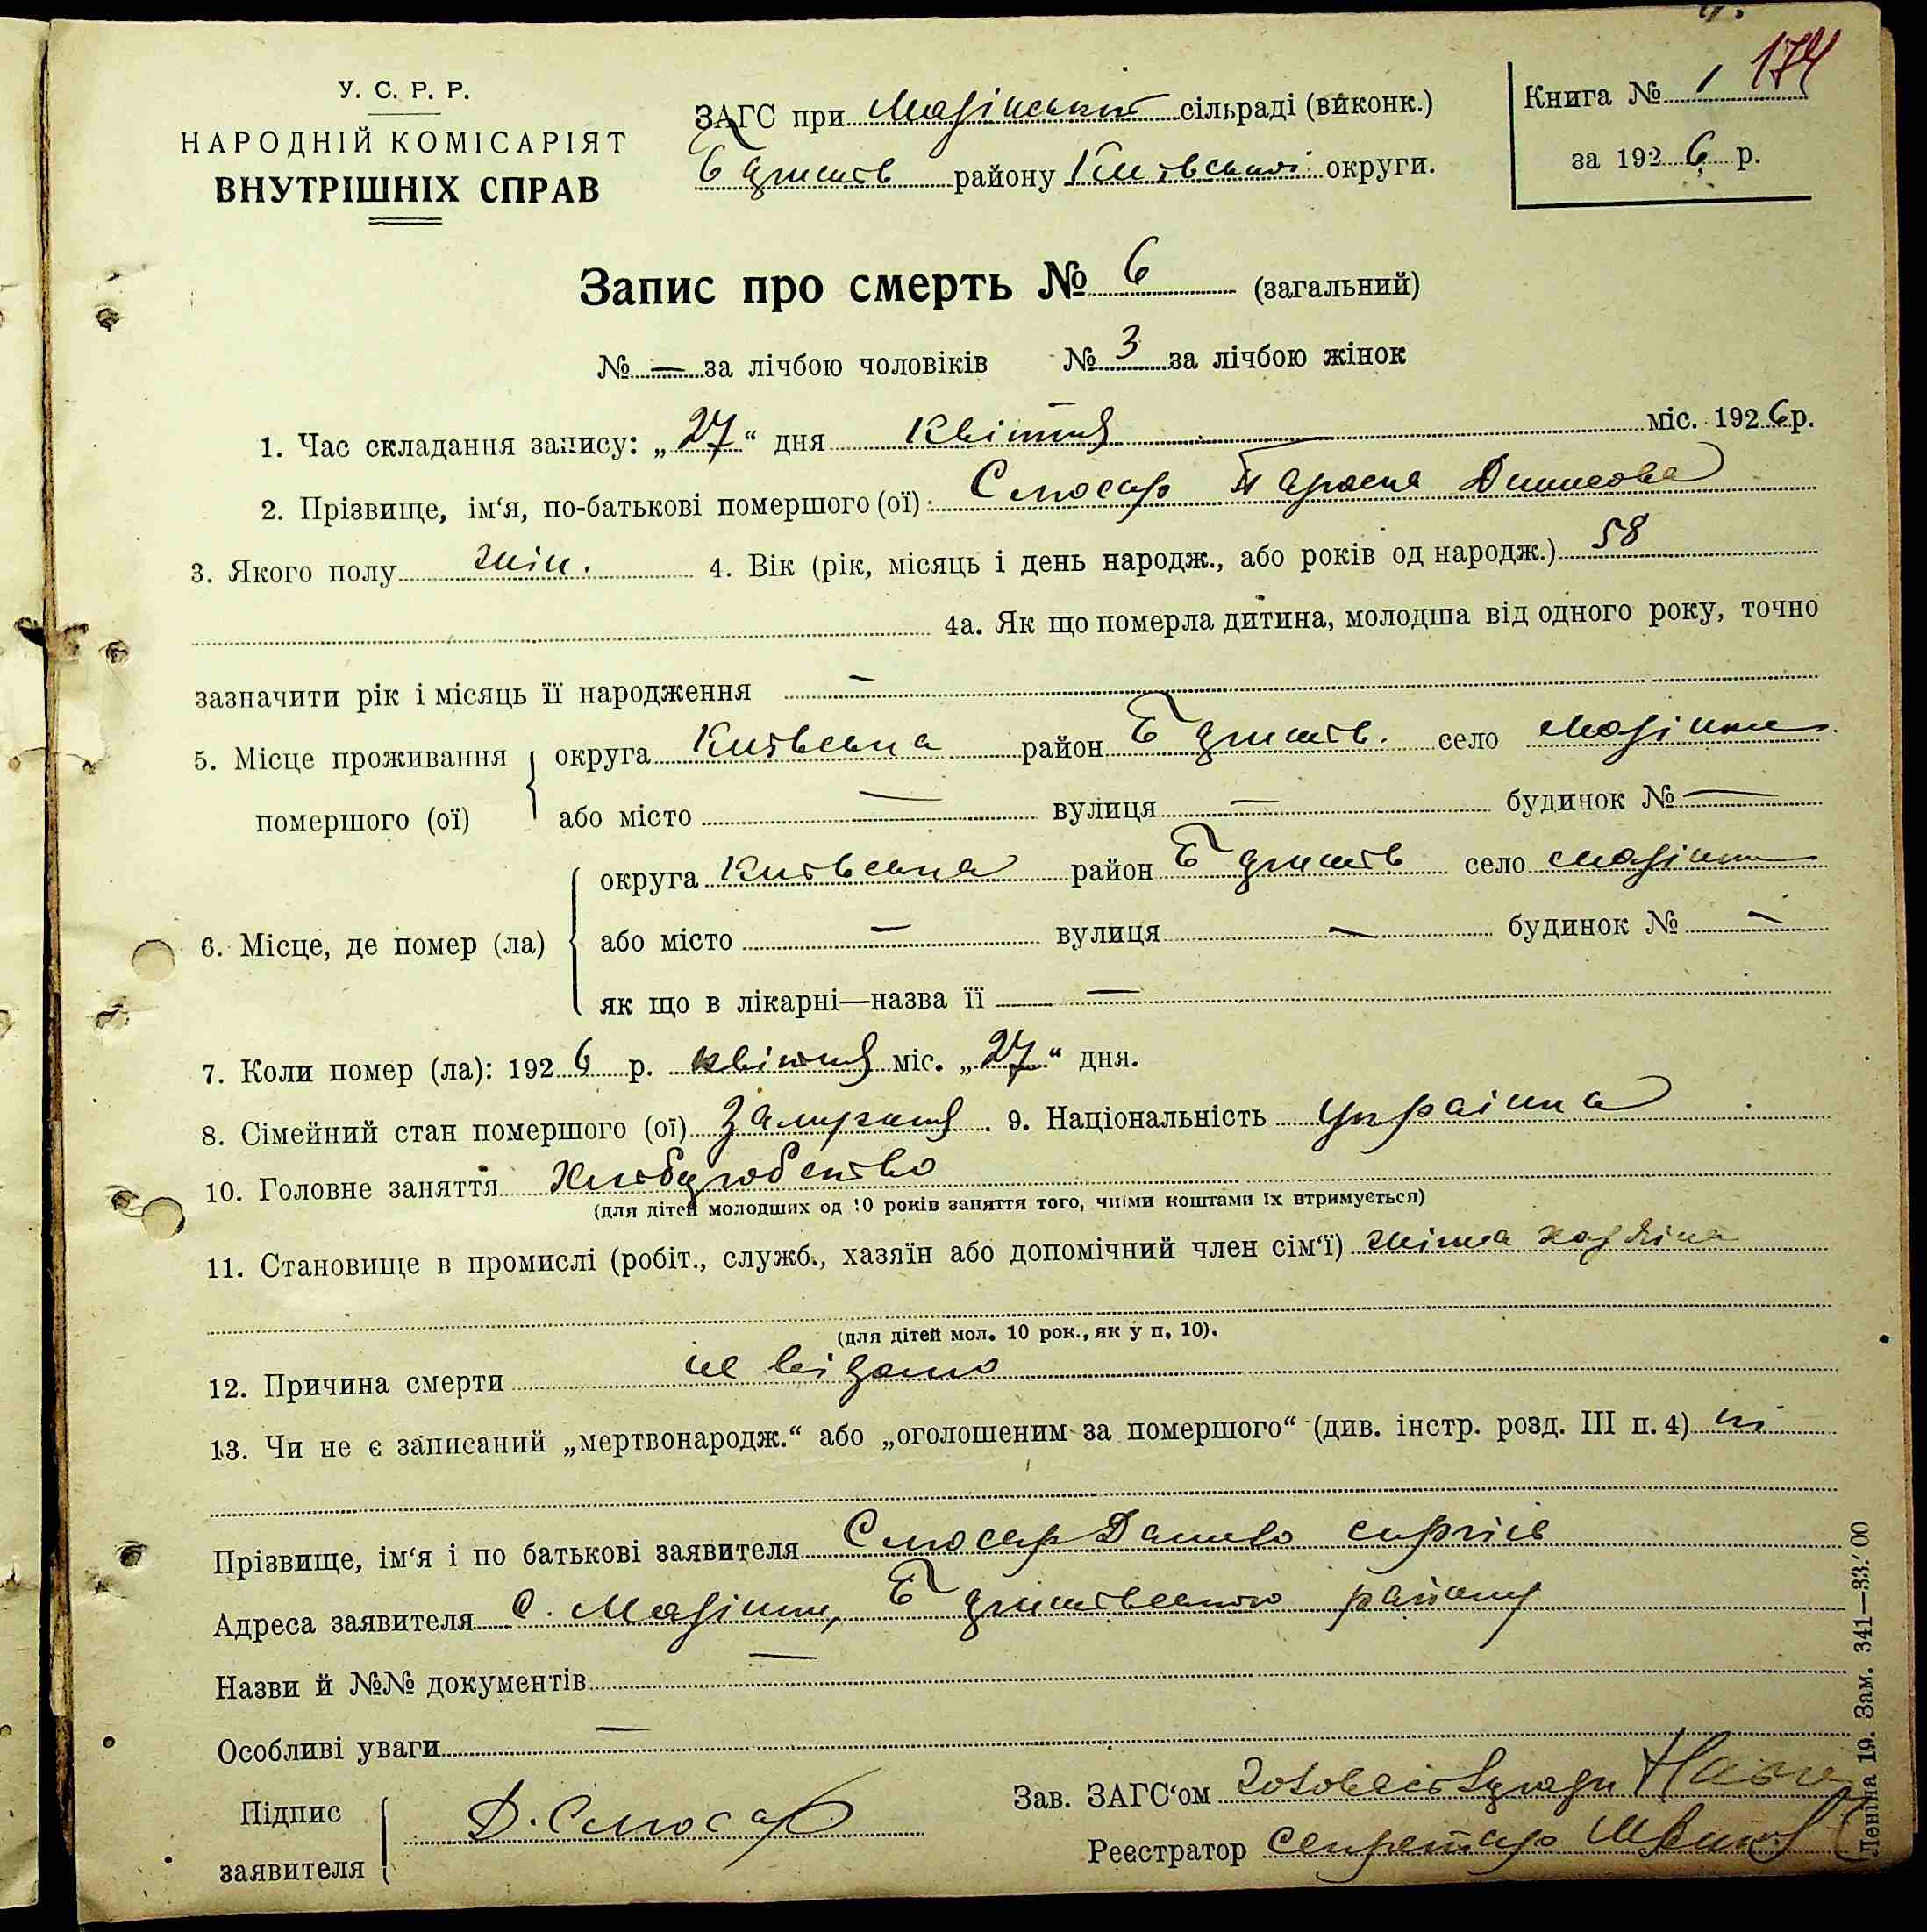 174
У. С. Р. Р.
НАРОДНІЙ КОМІСАРІЯТ
ВНУТРІШНІХ СПРАВ
ЗАГС при Мазінській сільраді (виконк.)
району Київської округи.
Книга № 1
за 1926 р.
Запис про смерть № 6 (загальний)
№ — за лічбою чоловіків № 3 за лічбою жінок
1. Час складання запису: „27“ дня Квітня міс. 1926 р.
2. Прізвище, ім‘я, по-батькові помершого (ої): Слюсар Параска Динисова
3. Якого полу жін. 4. Вік (рік, місяць і день народж., або років од народж.) 58
4а. Як що померла дитина, молодша від одного року, точно
зазначити рік і місяць її народження —
5. Місце проживання помершого (ої) округа Київська район село Мазінки
або місто — вулиця — будинок № —
6. Місце, де помер (ла) округа Київська район село Мазінки
або місто — вулиця — будинок № —
як що в лікарні—назва її —
7. Коли помер (ла): 1926 р. квітня міс. „27“ дня.
8. Сімейний стан помершого (ої) Замужня. 9. Національність Українка
10. Головне заняття Хліборобство
(для дітей молодших од 10 років заняття того, чиїми коштами їх втримується)
11. Становище в промислі (робіт., служб., хазяїн або допомічний член сім‘ї) жінка хазяїна
(для дітей мол. 10 рок., як у п. 10).
12. Причина смерти не відомо
13. Чи не є записаний „мертвонародж.“ або „оголошеним за помершого“ (див. інстр. розд. III п. 4) ні
Прізвище, ім‘я і по батькові заявителя Слюсар Данило
Адреса заявителя с. Мазінки, району
Назви й №№ документів —
Особливі уваги —
Підпис заявителя Д. Слюсар
Зав. ЗАГС‘ом
Реєстратор Секретарь
Леніна 19. Зам. 341—33.′00